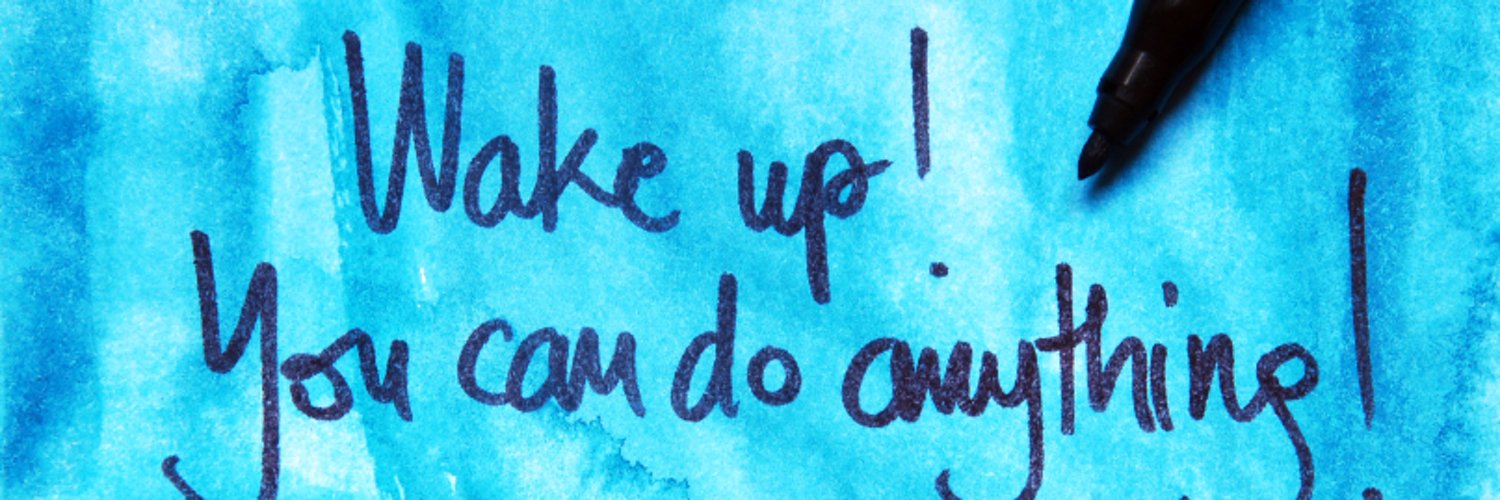 Wake up!
You can do anything!